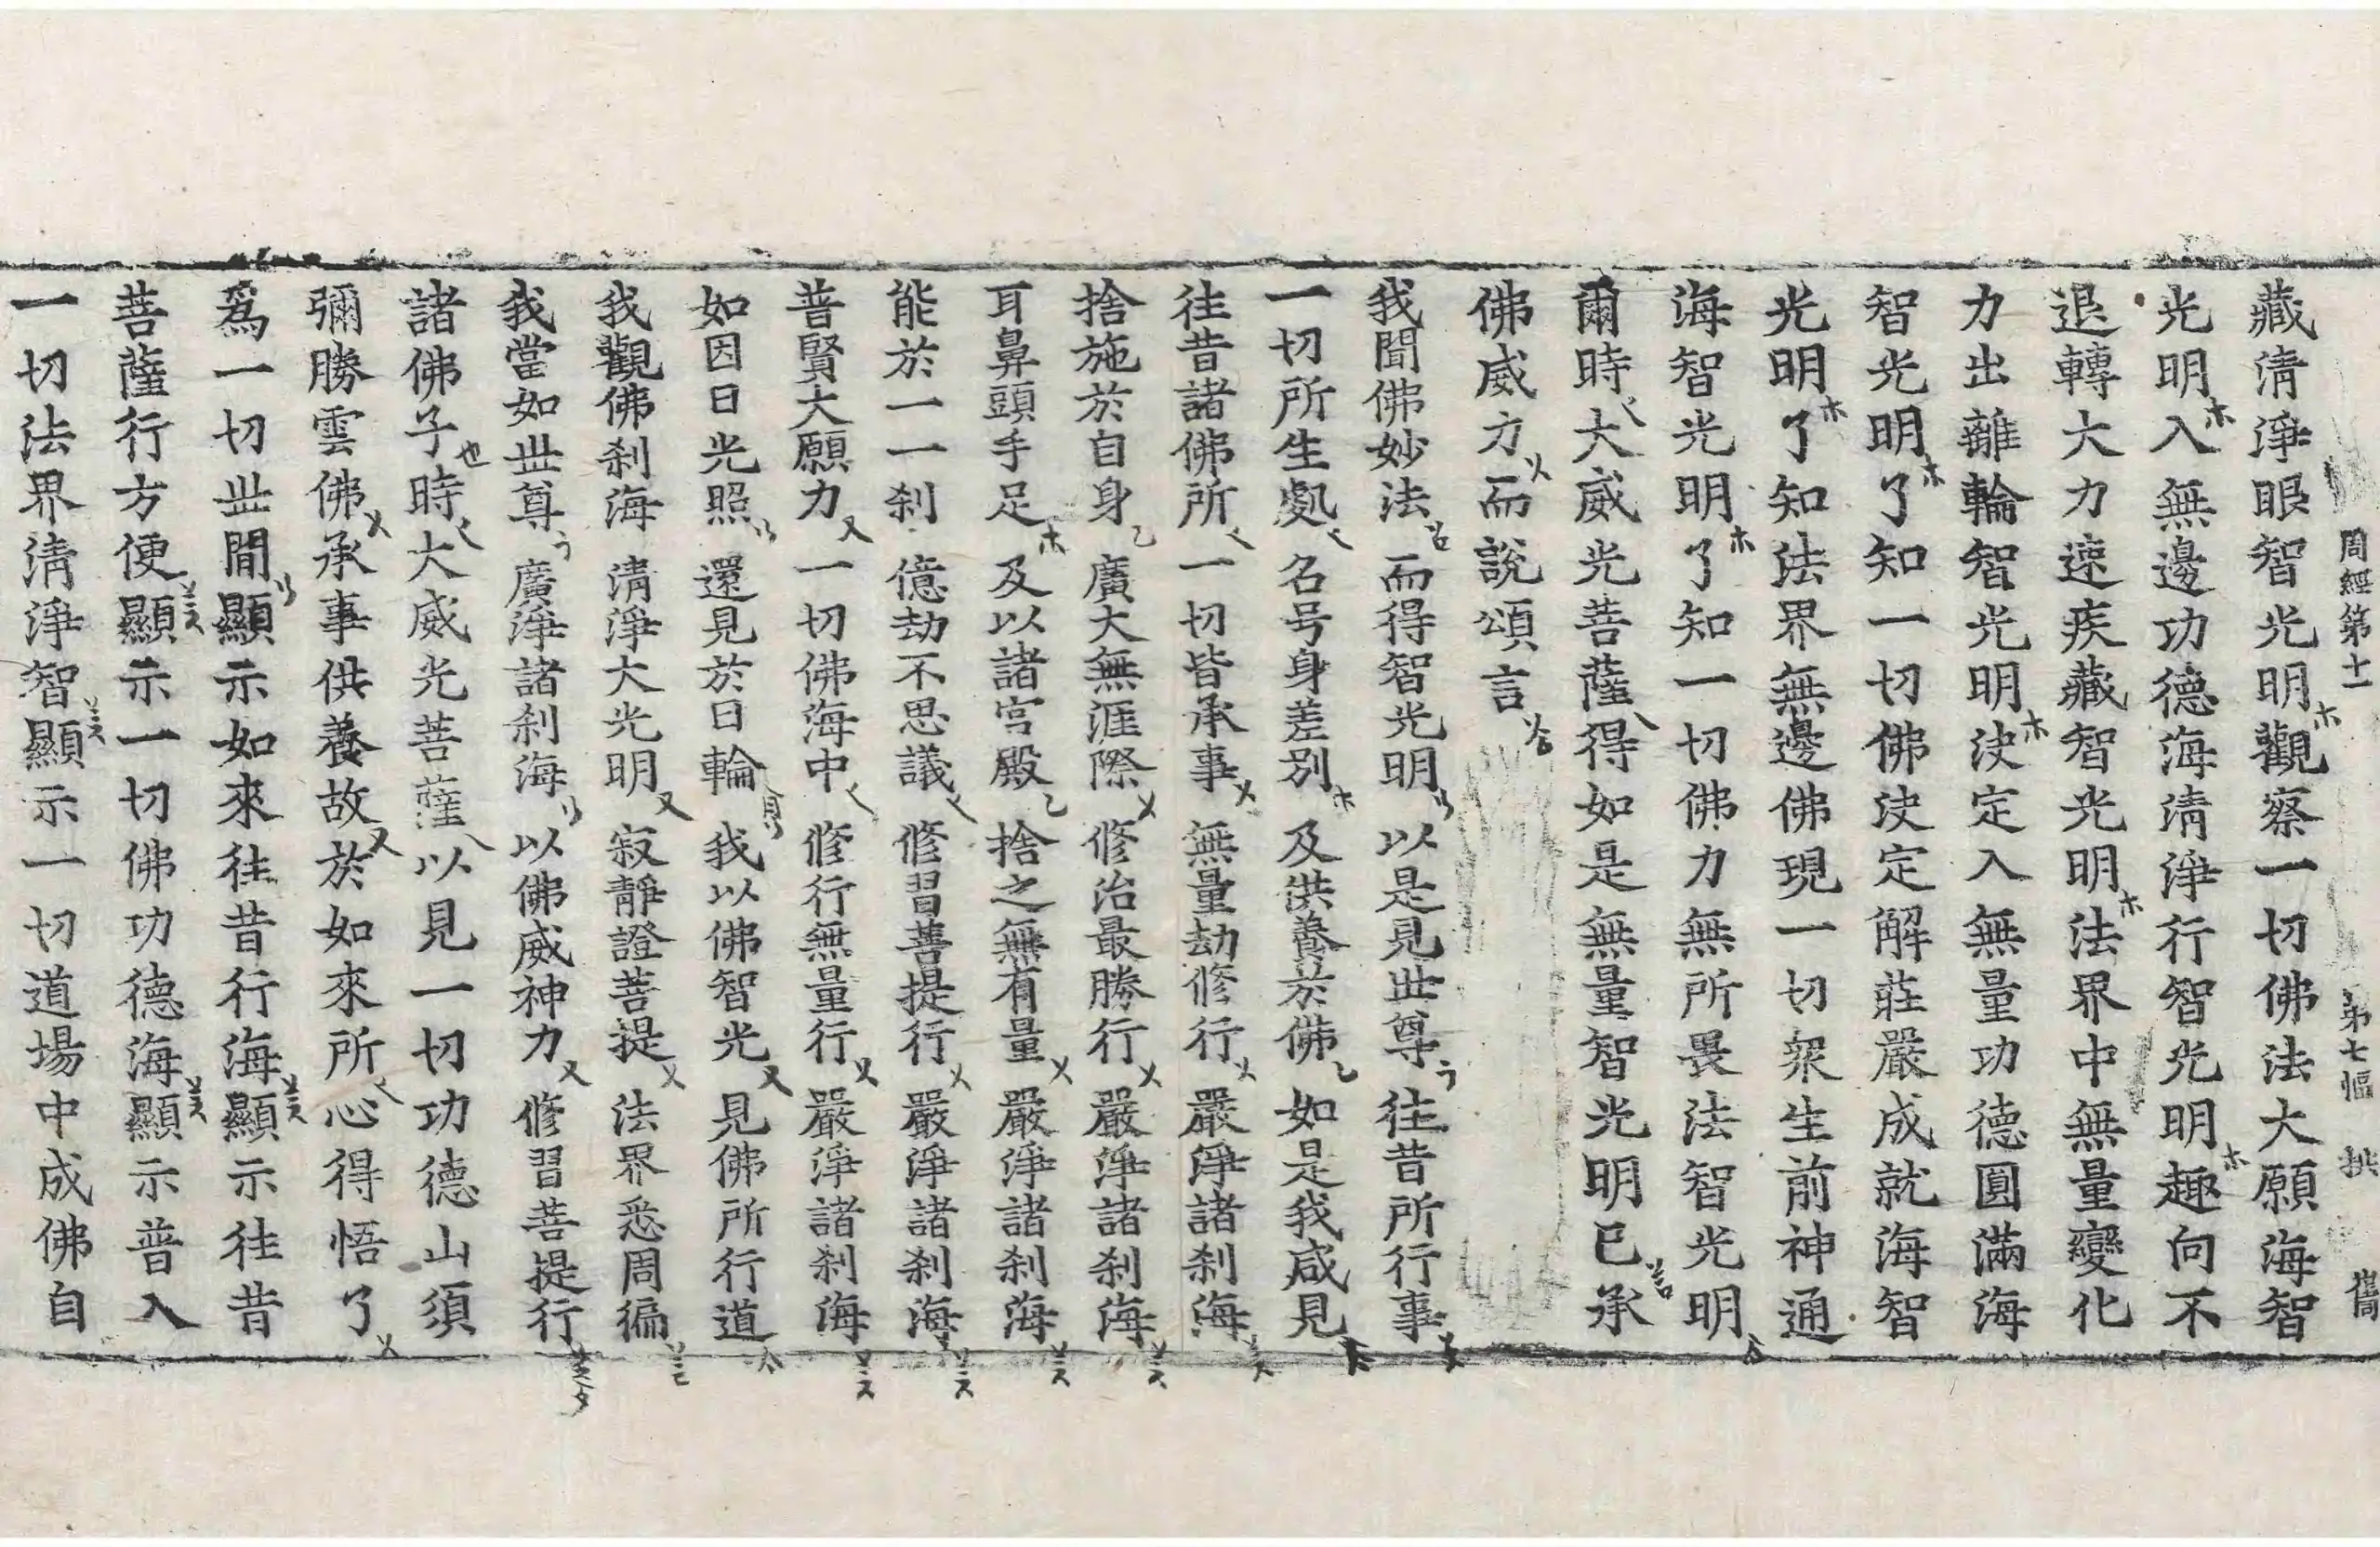 周經第十一 第七幅 崔
藏清淨眼智光明觀察一切佛法大願海智
光明入無邊功德海清淨行智光明趣向不
退轉大力速疾藏智光明法界中無量變化
力出離輪智光明決定入無量功德圓滿海
智光明了知一切佛決定解莊嚴成就海智
光明了知法界無邊佛現一切衆生前神通
海智光明了知一切佛力無所畏法智光明
爾時大威光菩薩得如是無量智光明已承
佛威力而說頌言
我聞佛妙法 而得智光明 以是見世尊 往昔所行事
一切所生處 名号身差別 及供養於佛 如是我咸見
往昔諸佛所 一切皆承事 無量劫修行 嚴淨諸刹海
捨施於自身 廣大無涯際 修治最勝行 嚴淨諸刹海
耳鼻頭手足 及以諸宮殿 捨之無有量 嚴淨諸刹海
能於一一刹 億劫不思議 修習菩提行 嚴淨諸刹海
普賢大願力 一切佛海中 修行無量行 嚴淨諸刹海
如因日光照 還見於日輪 我以佛智光 見佛所行道
我觀佛刹海 清淨大光明 寂靜證菩提 法界悉周徧
我當如世尊 廣淨諸刹海 以佛威神力 修習菩提行
諸佛子時大威光菩薩以見一切功德山須
彌勝雲佛承事供養故於如來所心得悟了
爲一切世間顯示如來往昔行海顯示往昔
菩薩行方便顯示一切佛功德海顯示普入
一切法界清淨智顯示一切道場中成佛自